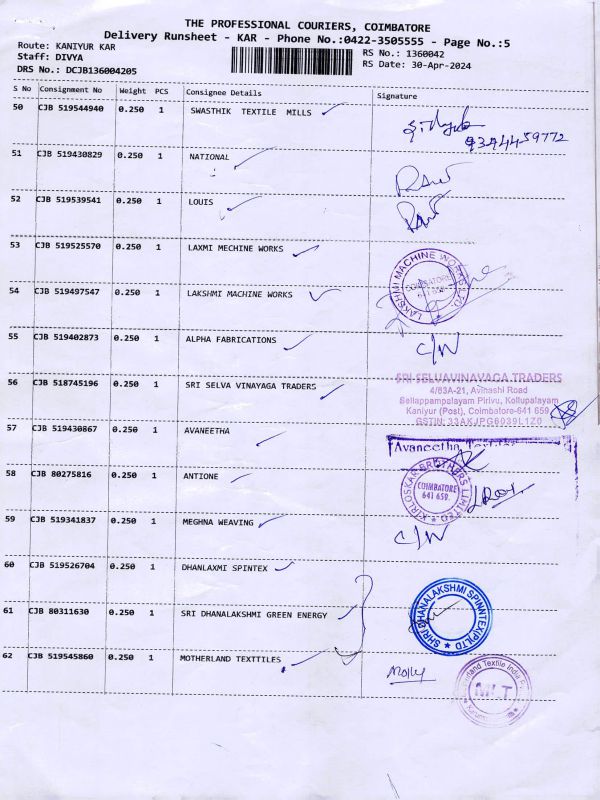 THE PROFESSIONAL COURIERS, COIMBATORE
Delivery Runsheet - KAR - Phone No.:0422-3505555 - Page No.:5
Route: KANIYUR KAR
RS No.: 1360042
Staff: DIVYA
RS Date: 30-Apr-2024
DRS No.: DCJB136004205
S No Consignment No Weight PCS Consignee Details Signature
50 CJB 519544940 0.250 1 SWASTHIK TEXTILE MILLS
9344459772
51 CJB 519430829 0.250 1 NATIONAL
52 CJB 519539541 0.250 1 LOUIS
53 CJB 519525570 0.250 1 LAXMI MECHINE WORKS
LAKSHMI MACHINE WORKS LTD
COIMBATORE
54 CJB 519497547 0.250 1 LAKSHMI MACHINE WORKS
55 CJB 519402873 0.250 1 ALPHA FABRICATIONS
C/W
56 CJB 518745196 0.250 1 SRI SELVA VINAYAGA TRADERS
SRI SELVAVINAYAGA TRADERS
4/83A-21, Avinashi Road
Sellappampalayam Pirivu, Kollupalayam
Kaniyur (Post), Coimbatore-641 659
GSTIN: 33AKJPG6039L1Z0
57 CJB 519430867 0.250 1 AVANEETHA
Avaneetha Textiles
58 CJB 80275816 0.250 1 ANTIONE
KIRLOSKAR BROTHERS LIMITED
COIMBATORE
641 659.
59 CJB 519341837 0.250 1 MEGHNA WEAVING
C/W
60 CJB 519526704 0.250 1 DHANLAXMI SPINTEX
61 CJB 80311630 0.250 1 SRI DHANALAKSHMI GREEN ENERGY
SHRI DHANALAKSHMI SPINNTEX(P)LTD
62 CJB 519545860 0.250 1 MOTHERLAND TEXTTILES
Molly
Motherland Textile India